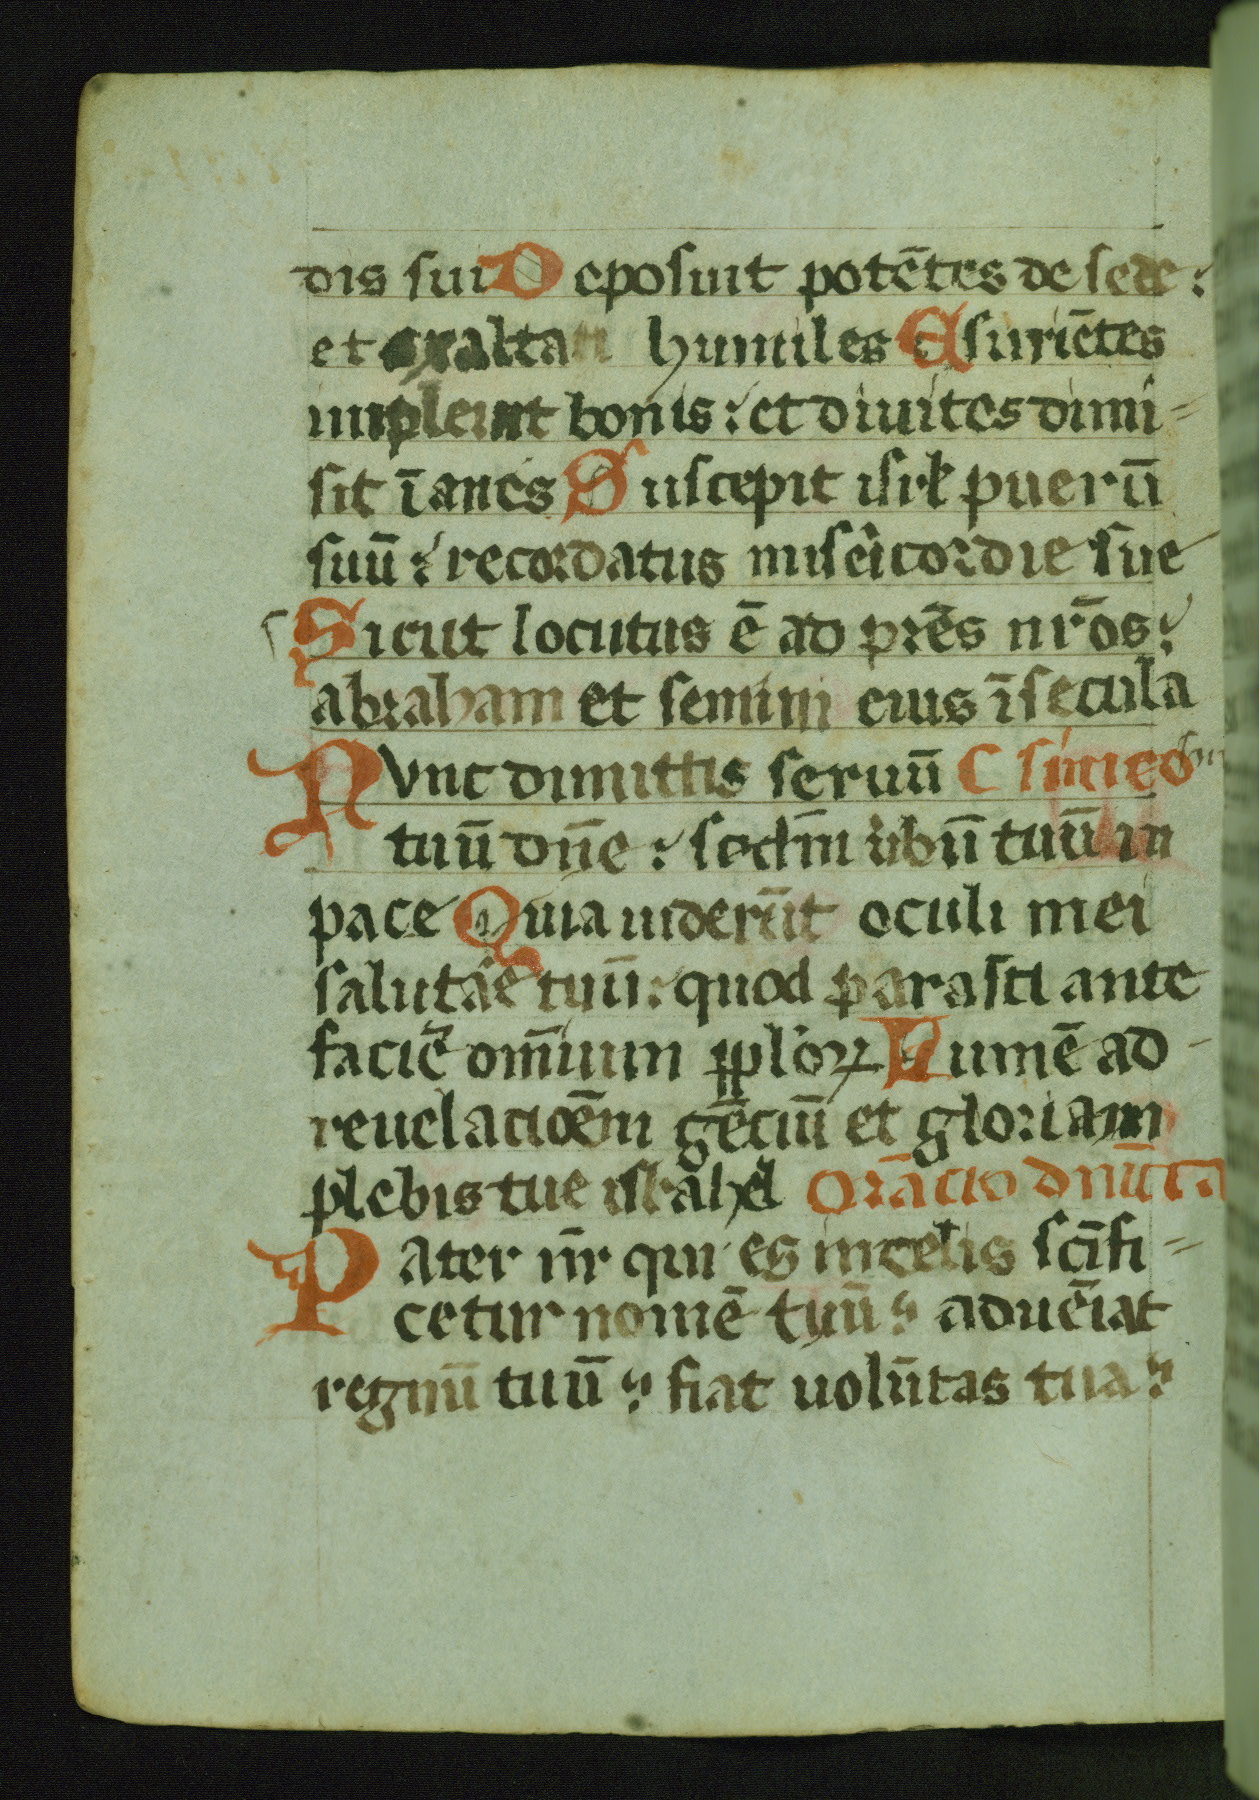 dis sui Deposuit potē̄tes de sede :
et exaltauit humiles Esuriētes
impleuit bonis : et diuites dimi-
sit īanes Suscepit isrl̄ puerū
suū : recordatus misēicordie sue
Sicut locutus ē ad prēs nr̄os :
abraham et semini eius ī secula
Nunc dimittis seruū C simeo
tuū dn̄e : secdm̄ ūbū tuū in
pace Quia uiderūt oculi mei
salutāe tuū : quod parasti ante
faciē omīum ppl'oꝝ Lumē ad-
reuelacioēm gēciū et gloriam
plebis tue israhel Orācio dn̄ica
Pater nr̄ qui es in celis scīfi-
cetur nomē tuū : aduēiat
regnū tuū : fiat uolūtas tua :